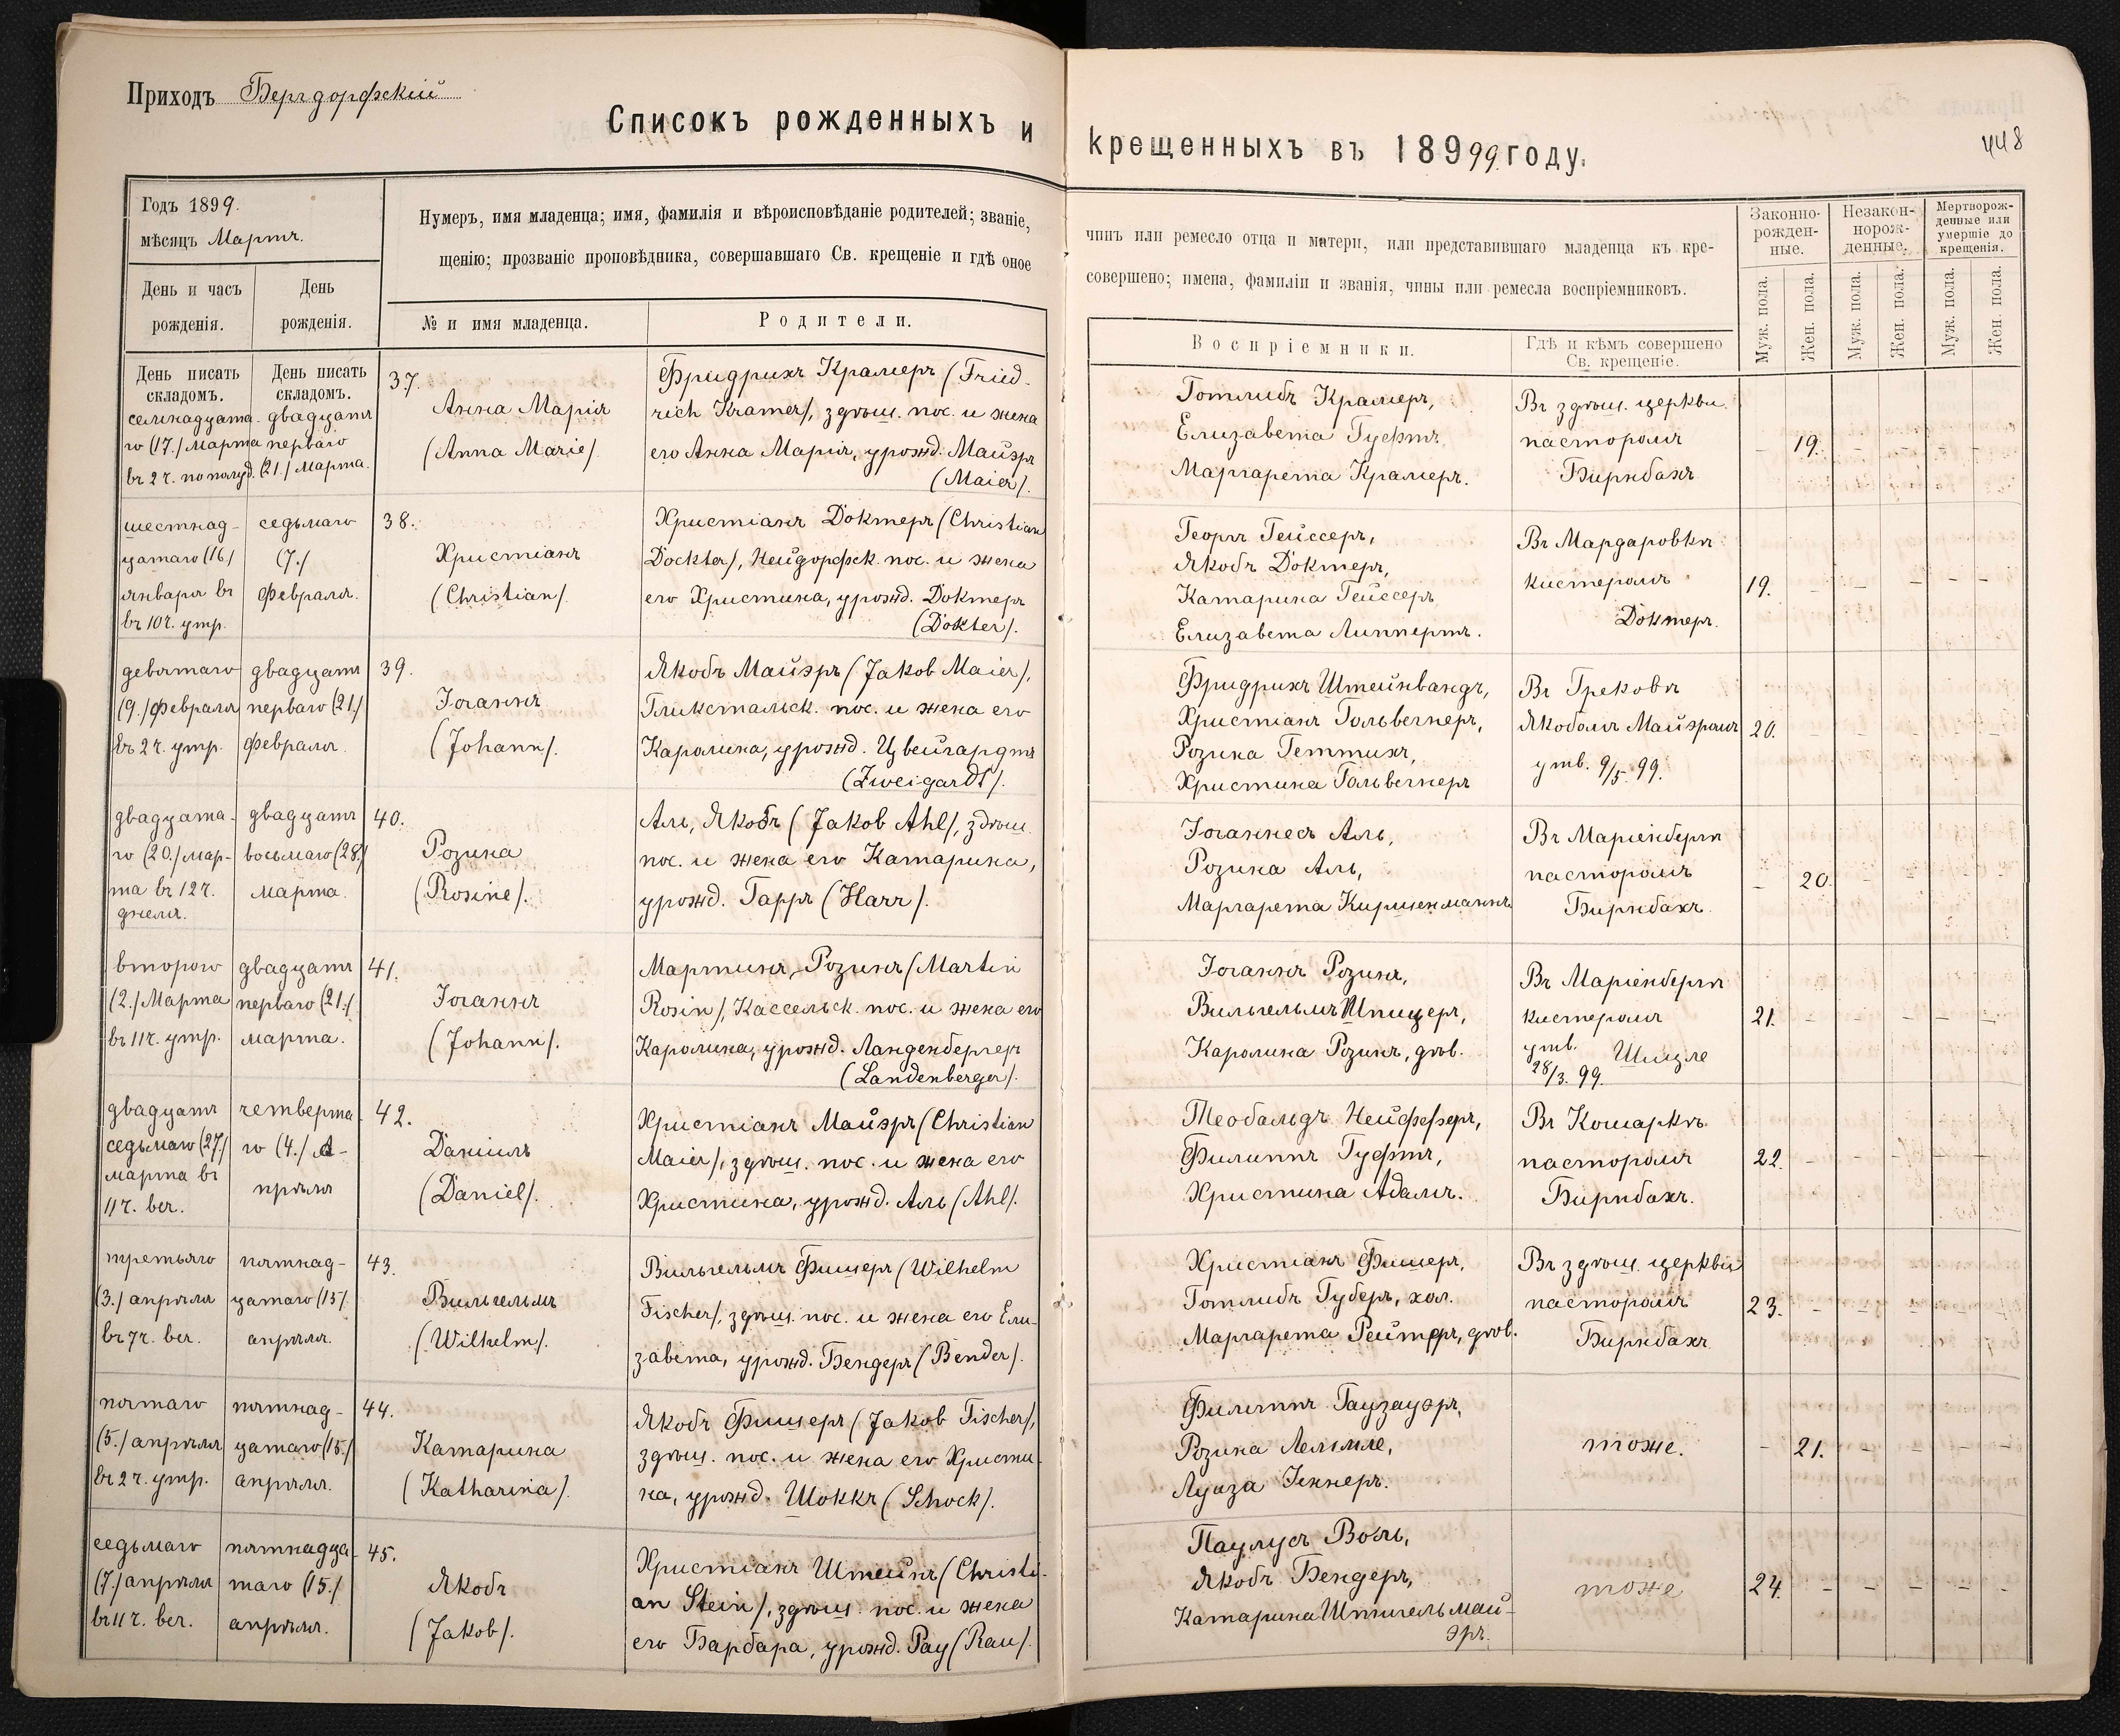 Приходъ Бергдорфскій
Списокъ рожденныхъ и крещенныхъ въ 18999 году.
448
Годъ 1899.
мѣсяцъ Мартъ.
Нумеръ, имя младенца; имя, фамилія и вѣроисповѣданіе родителей; званіе,
чинъ или ремесло отца и матери, или представившаго младенца къ кре-
щенію; прозваніе проповѣдника, совершавшаго Св. крещеніе и гдѣ оное
совершено; имена, фамиліи и званія, чины или ремесла воспріемниковъ.
Законно-
рожден-
ные.
Незакон-
норож-
денные.
Мертворож-
денные или
умершіе до
крещенія.
День и часъ
рожденія.
День
рожденія.
№ и имя младенца.
Родители.
Воспріемники.
Гдѣ и кѣмъ совершено
Св. крещеніе.
Муж. пола.
Жен. пола.
Муж. пола.
Жен. пола.
Муж. пола.
Жен. пола.
День писать
складомъ.
День писать
складомъ.
семнадцата-
го (17.) марта
въ 2 ч. пополуд.
двадцать
перваго
(21.) марта.
37.
Анна Марія
(Anna Marie).
Фридрихъ Крамеръ (Fried-
rich Kramer), здѣш. пос. и жена
его Анна Марія, урожд. Майэръ
(Maier).
Готлибъ Крамеръ,
Елизавета Гуфтъ,
Маргарета Крамеръ.
Въ здѣш. церкви
пасторомъ
Бирнбахъ
- 19. - - - -
шестнад-
цатаго (16.)
января въ
въ 10 ч. утр.
седьмаго
(7.)
февраля.
38.
Христіанъ
(Christian).
Христіанъ Доктеръ (Christian
Dockter), Нейдорфск. пос. и жена
его Христина, урожд. Доктеръ
(Dokter).
Георгъ Гейссеръ,
Якобъ Доктеръ,
Катарина Гейссеръ,
Елизавета Липпертъ.
Въ Мардаровкѣ
кистеромъ
Доктеръ.
19. - - - - -
девятаго
(9.) февраля
въ 2 ч. утр.
двадцать
перваго (21.)
февраля.
39.
Іоганнъ
(Johann).
Якобъ Майэръ (Jakob Maier),
Гликстальск. пос. и жена его
Каролина, урожд. Цвейгардтъ
(Zweigardt).
Фридрихъ Штейнвандъ,
Христіанъ Гольвегнеръ,
Розина Геттихъ,
Христина Гольвегнеръ
Въ Грековѣ
Якобомъ Майэромъ
утв. 9/5. 99.
20. - - - - -
двадцата-
го (20.) мар-
та въ 12 ч.
днемъ.
двадцать
восьмаго (28.)
марта.
40.
Розина
(Rosine).
Аль, Якобъ (Jakob Ahl), здѣш.
пос. и жена его Катарина,
урожд. Гарръ (Harr).
Іоганнесъ Аль,
Розина Аль,
Маргарета Киршенманнъ
Въ Маріенбергѣ
пасторомъ
Бирнбахъ.
- 20. - - - -
втораго
(2.) Марта
въ 11 ч. утр.
двадцать
перваго (21.)
марта.
41.
Іоганнъ
(Johann).
Мартинъ Розинъ (Martin
Rosin), Кассельск. пос. и жена его
Каролина, урожд. Ланденбергеръ
(Landenberger).
Іоганнъ Розинъ,
Вильгельмъ Шпицеръ,
Каролина Розинъ, дѣв.
Въ Маріенбергѣ
кистеромъ
утв. Шицле
28/3. 99.
21. - - - - -
двадцать
седьмаго (27.)
марта въ
11 ч. веч.
четверта-
го (4.) А-
прѣля
42.
Даніилъ
(Daniel).
Христіанъ Майэръ (Christian
Maier), здѣш. пос. и жена его
Христина, урожд. Аль (Ahl).
Теобальдъ Нейфферъ,
Филиппъ Гуфтъ,
Христина Адамъ.
Въ Кошаркѣ
пасторомъ
Бирнбахъ.
22. - - - - -
третьяго
(3.) апрѣля
въ 7 ч. веч.
пятнад-
цатаго (15.)
апрѣля.
43.
Вильгельмъ
(Wilhelm).
Вильгельмъ Фишеръ (Wilhelm
Fischer), здѣш. пос. и жена его Ели-
завета, урожд. Бендеръ (Bender).
Христіанъ Фишеръ,
Готлибъ Губеръ, хол.
Маргарета Рейтеръ, дѣв.
Въ здѣш. церкви
пасторомъ
Бирнбахъ
23. - - - - -
пятаго
(5.) апрѣля
въ 2 ч. утр.
пятнад-
цатаго (15.)
апрѣля.
44.
Катарина
(Katharina).
Якобъ Фишеръ (Jakob Fischer),
здѣш. пос. и жена его Христи-
на, урожд. Шоккъ (Schock).
Филиппъ Гаузауэръ,
Розина Леммле,
Луиза Іеннеръ.
тоже.
- 21. - - - -
седьмаго
(7.) апрѣля
въ 11 ч. веч.
пятнадца-
таго (15.)
апрѣля.
45.
Якобъ
(Jakob).
Христіанъ Штейнъ (Christi-
an Stein), здѣш. пос. и жена
его Барбара, урожд. Рау (Rau).
Паулусъ Воль,
Якобъ Бендеръ,
Катарина Штигельмай-
эръ.
тоже
24. - - - - -